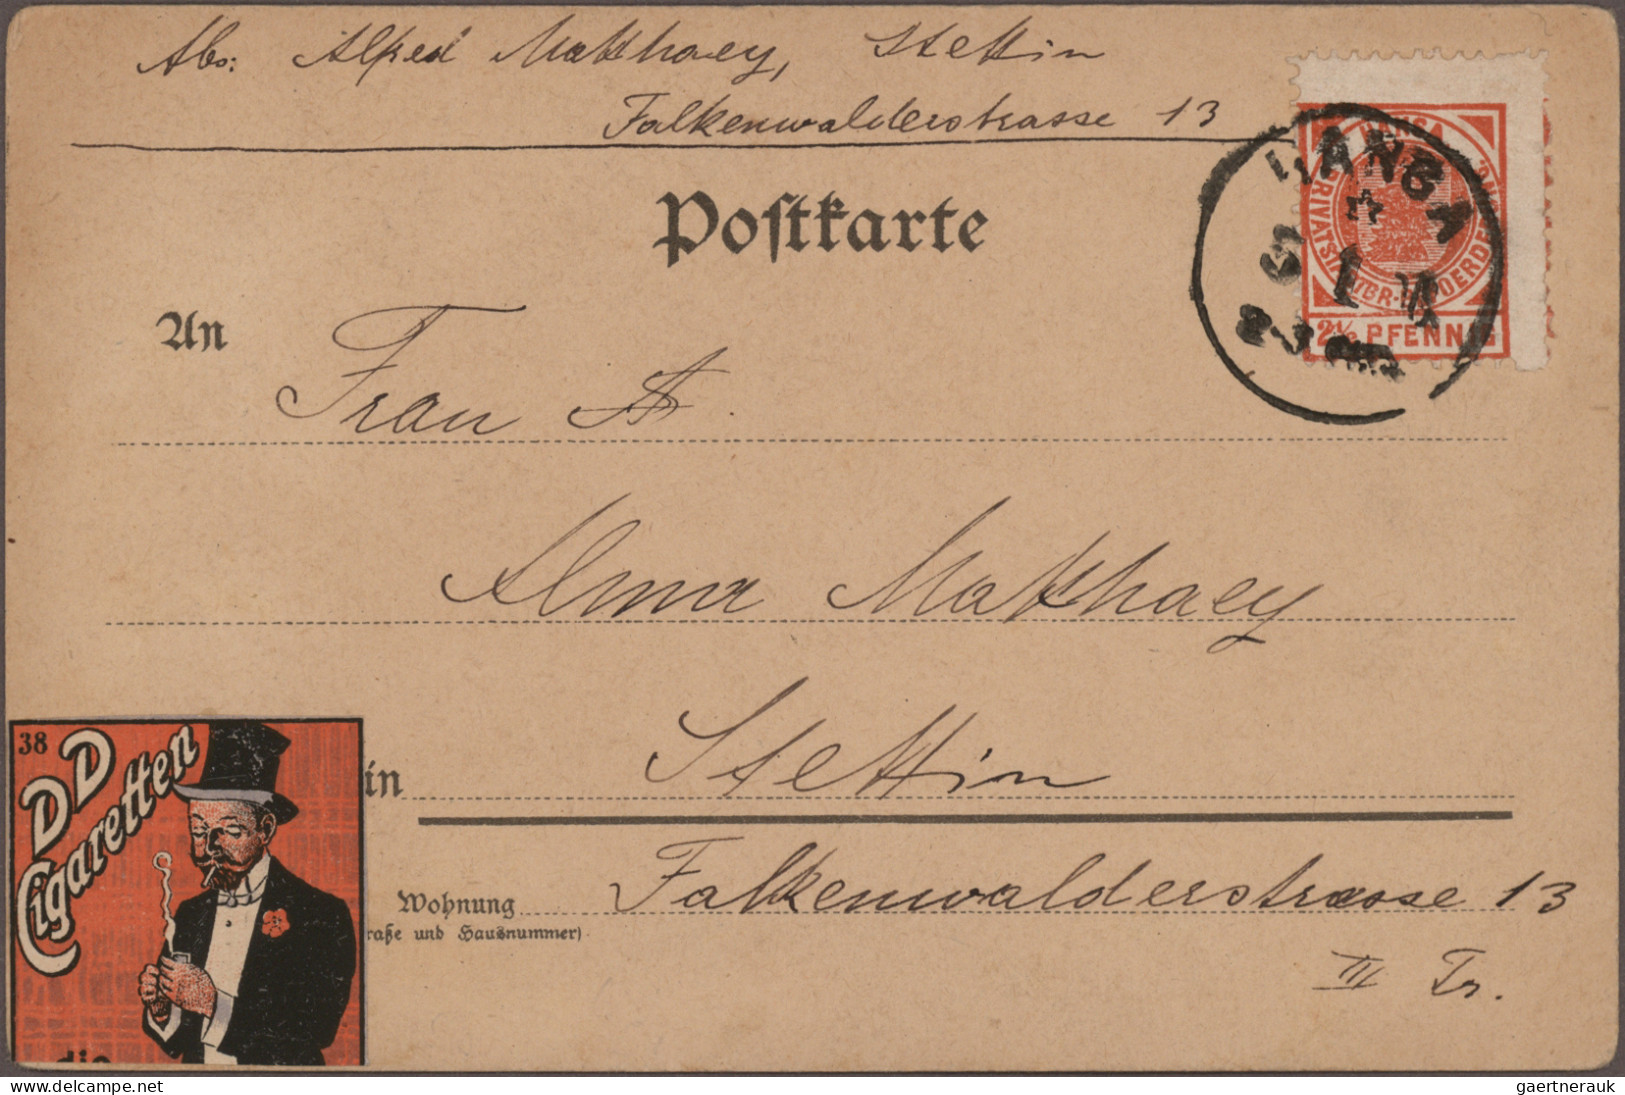 Abs: Alfred Matthaey, Stettin
Falkenwalderstrasse 13
HANSA
PRIVATSTADTBR-BEFOERDRUNG
2½ PFENNIG
HANSA
1
Postkarte
An
Frau A.
Alma Matthaey
in Stettin
38
DD
Cigaretten
die
Wohnung Falkenwalderstrasse 13
raße und Hausnummer)
III Tr.
delcampe.net
gaertnerauk